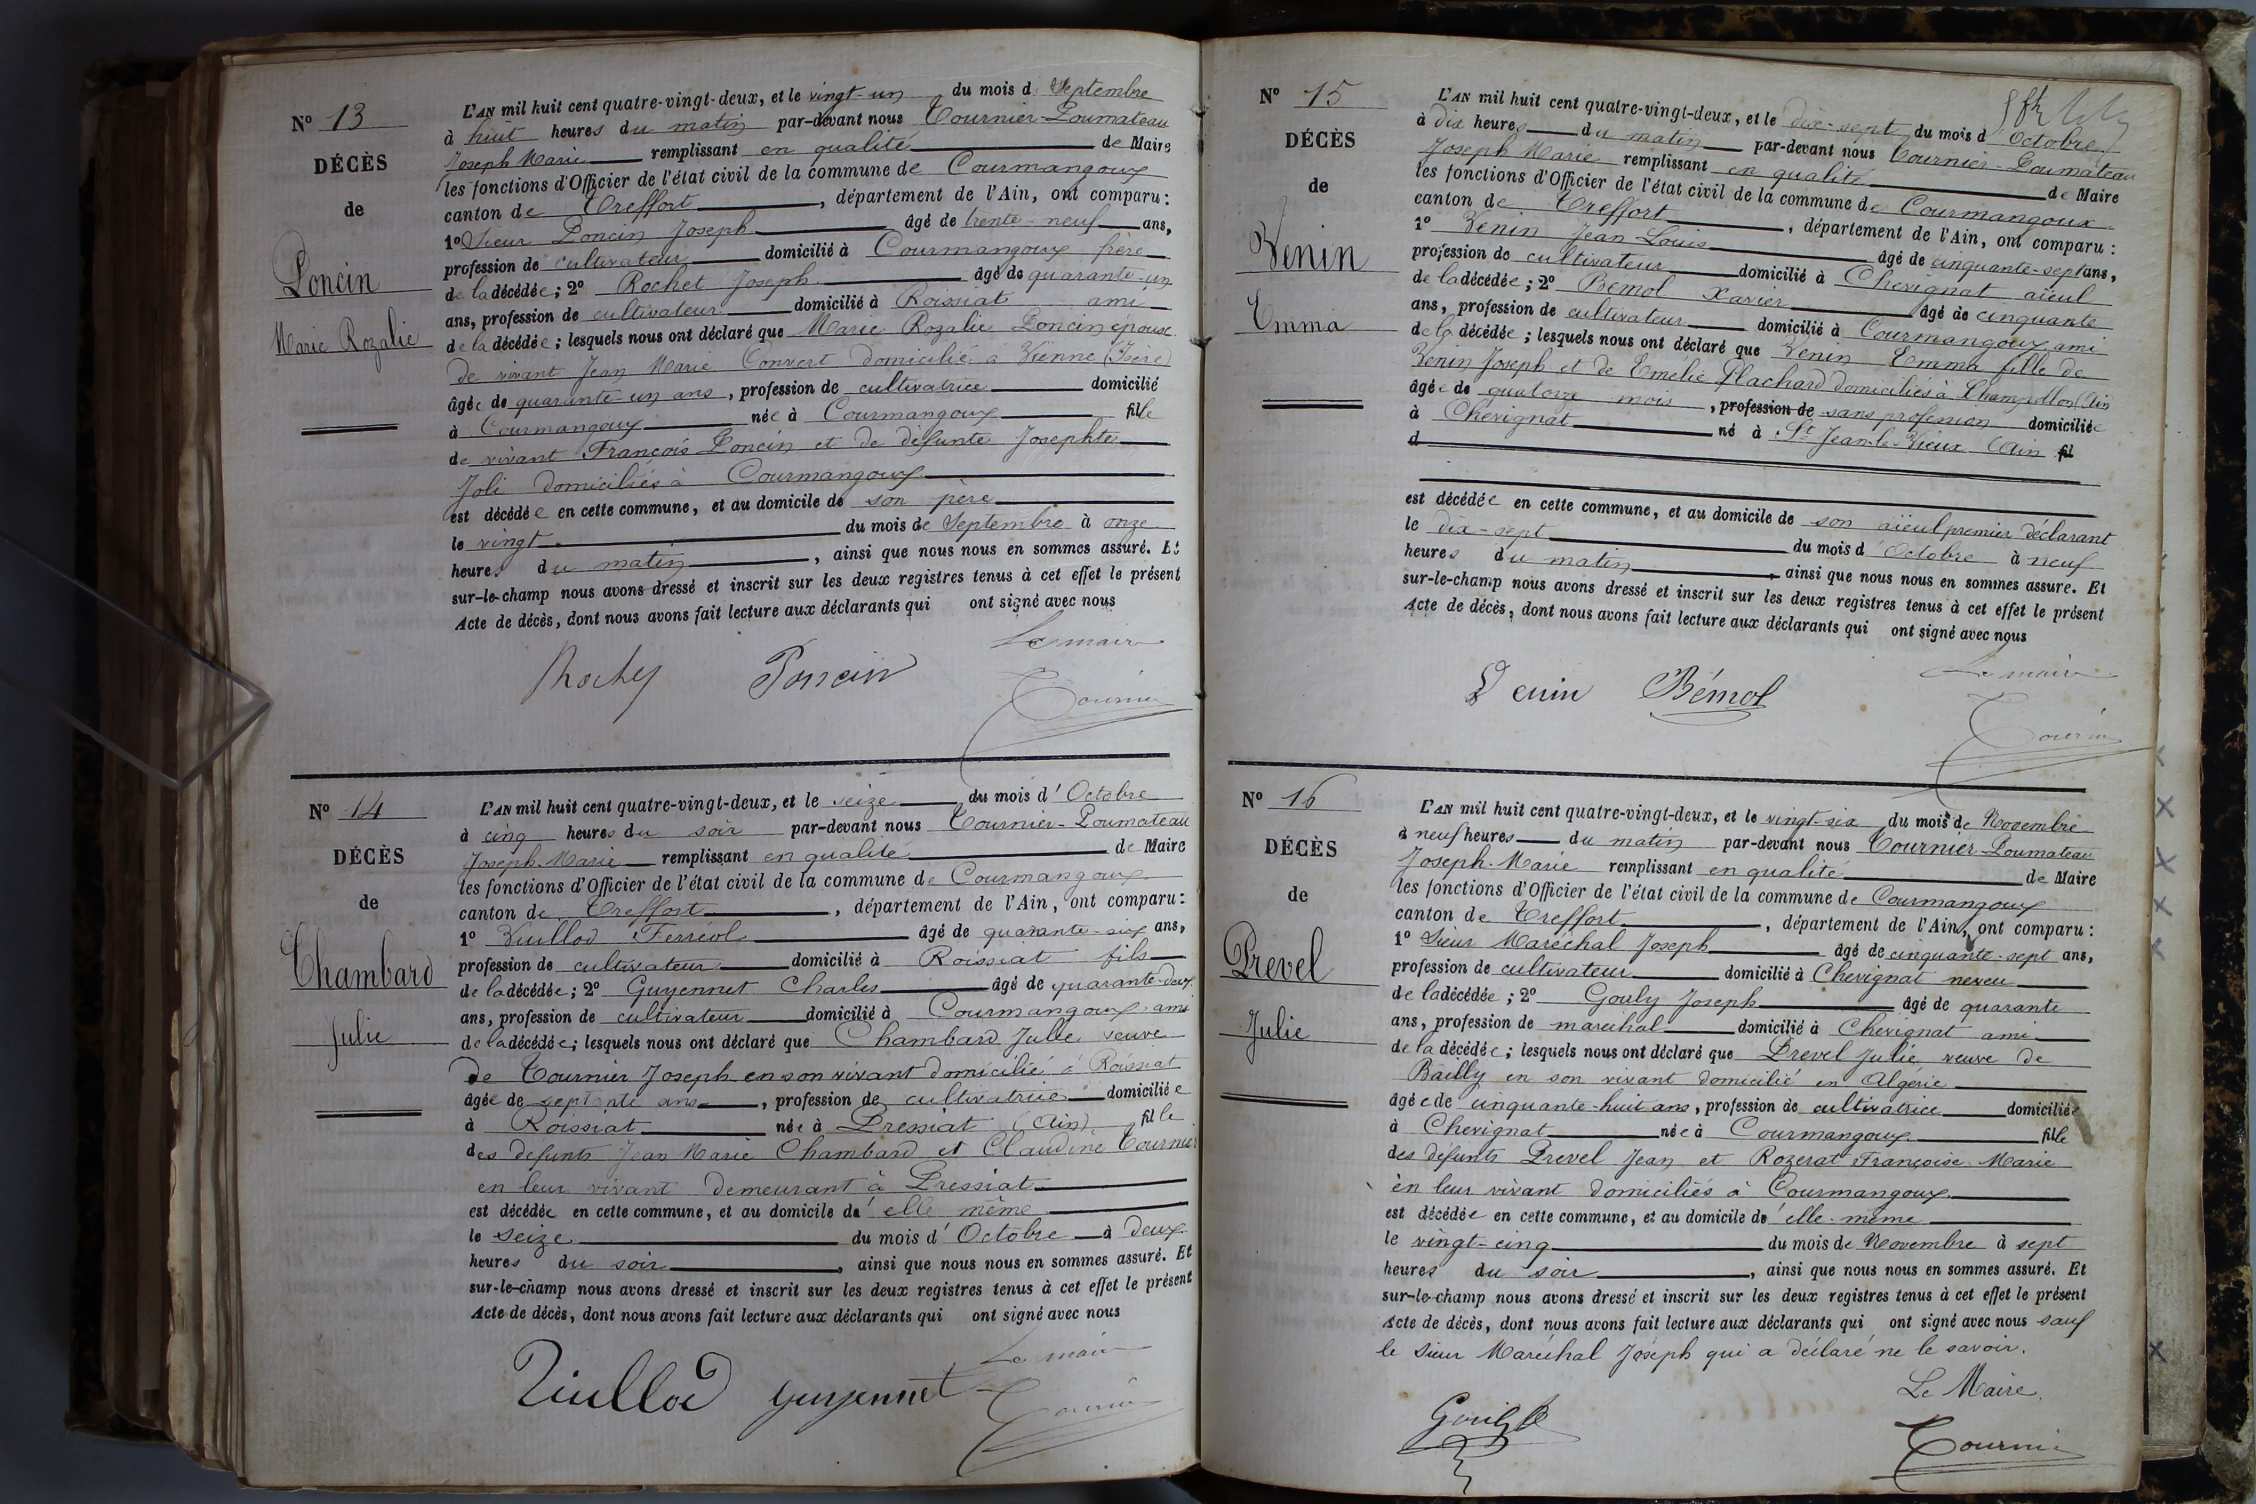 N° 13
DÉCÈS
de
Poncin
Marie Rozalie
L'AN mil huit cent quatre-vingt-deux, et le vingt-un du mois de Septembre
à huit heures du matin par-devant nous Tournier-Poumateau
Joseph Marie remplissant en qualité de Maire
les fonctions d'Officier de l'état civil de la commune de Courmangoux
canton de Treffort, département de l'Ain, ont comparu:
1° Sieur Poncin Joseph âgé de trente-neuf ans,
profession de cultivateur domicilié à Courmangoux frère
de la décédée; 2° Rochet Joseph âgé de quarante-un
ans, profession de cultivateur domicilié à Roissiat ami
de la décédée; lesquels nous ont déclaré que Marie Rozalie Poncin épouse
de vivant Jean Marie Convert domicilié à Vienne (Isère)
âgée de quarante-un ans, profession de cultivatrice domicilié
à Courmangoux née à Courmangoux fille
de vivant François Poncin et de défunte Josephte
Joli domiciliés à Courmangoux
est décédée en cette commune, et au domicile de son père
le vingt du mois de Septembre à onze
heures du matin, ainsi que nous nous en sommes assuré. Et
sur-le-champ nous avons dressé et inscrit sur les deux registres tenus à cet effet le présent
Acte de décès, dont nous avons fait lecture aux déclarants qui ont signé avec nous
Le maire
Poncin
Tournier
N° 14
DÉCÈS
de
Chambard
Julie
L'AN mil huit cent quatre-vingt-deux, et le seize du mois d'Octobre
à cinq heures du soir par-devant nous Tournier-Poumateau
Joseph-Marie remplissant en qualité de Maire
les fonctions d'Officier de l'état civil de la commune de Courmangoux
canton de Treffort, département de l'Ain, ont comparu:
1° Vuillod Ferréol âgé de quarante-six ans,
profession de cultivateur domicilié à Roissiat fils
de la décédée; 2° Guyennet Charles âgé de quarante-deux
ans, profession de cultivateur domicilié à Courmangoux ami
de la décédée; lesquels nous ont déclaré que Chambard Julie veuve
de Tournier Joseph en son vivant domicilié à Roissiat
âgée de septante ans, profession de cultivatrice domiciliée
à Roissiat née à Pressiat (Ain) fille
des defunts Jean Marie Chambard et Claudine Tournier
en leur vivant demeurant à Pressiat
est décédée en cette commune, et au domicile d'elle même
le seize du mois d'Octobre à deux
heures du soir, ainsi que nous nous en sommes assuré. Et
sur-le-champ nous avons dressé et inscrit sur les deux registres tenus à cet effet le présent
Acte de décès, dont nous avons fait lecture aux déclarants qui ont signé avec nous
Le maire
Vuillod Guyennet
Tournier
N° 15
DÉCÈS
de
Venin
Emma
L'AN mil huit cent quatre-vingt-deux, et le dix-sept du mois d'Octobre
à dix heures du matin par-devant nous Tournier-Poumateau
Joseph Marie remplissant en qualité de Maire
les fonctions d'Officier de l'état civil de la commune de Courmangoux
canton de Treffort, département de l'Ain, ont comparu:
1° Venin Jean Louis âgé de cinquante-sept ans,
profession de cultivateur domicilié à Chevignat aïeul
de la décédée; 2° Bemol Xavier âgé de cinquante
ans, profession de cultivateur domicilié à Courmangoux ami
de la décédée; lesquels nous ont déclaré que Venin Emma fille de
Venin Joseph et de Emelie Flachard domiciliés à Champollon (Ain)
âgée de quatorze mois, profession de sans profession domiciliée
à Chevignat né à St Jean-le-Vieux (Ain fil
d
est décédée en cette commune, et au domicile de son aïeul premier déclarant
le dix-sept du mois d'Octobre à neuf
heures du matin, ainsi que nous nous en sommes assuré. Et
sur-le-champ nous avons dressé et inscrit sur les deux registres tenus à cet effet le présent
Acte de décès, dont nous avons fait lecture aux déclarants qui ont signé avec nous
Le maire
Venin Bémol
Tournier
N° 16
DÉCÈS
de
Prevel
Julie
L'AN mil huit cent quatre-vingt-deux, et le vingt-six du mois de Novembre
à neuf heures du matin par-devant nous Tournier-Poumateau
Joseph-Marie remplissant en qualité de Maire
les fonctions d'Officier de l'état civil de la commune de Courmangoux
canton de Treffort, département de l'Ain, ont comparu:
1° Sieur Maréchal Joseph âgé de cinquante-sept ans,
profession de cultivateur domicilié à Chevignat neveu
de la décédée; 2° Gouly Joseph âgé de quarante
ans, profession de maréchal domicilié à Chevignat ami
de la décédée; lesquels nous ont déclaré que Prevel Julie veuve de
Bailly en son vivant domicilié en Algérie
âgée de cinquante-huit ans, profession de cultivatrice domiciliée
à Chevignat née à Courmangoux fille
des défunts Prevel Jean et Rozerat Françoise Marie
en leur vivant domiciliés à Courmangoux
est décédée en cette commune, et au domicile d'elle-même
le vingt-cinq du mois de Novembre à sept
heures du soir, ainsi que nous nous en sommes assuré. Et
sur-le-champ nous avons dressé et inscrit sur les deux registres tenus à cet effet le présent
Acte de décès, dont nous avons fait lecture aux déclarants qui ont signé avec nous sauf
le Sieur Maréchal Joseph qui a déclaré ne le savoir.
Le Maire
Tournier